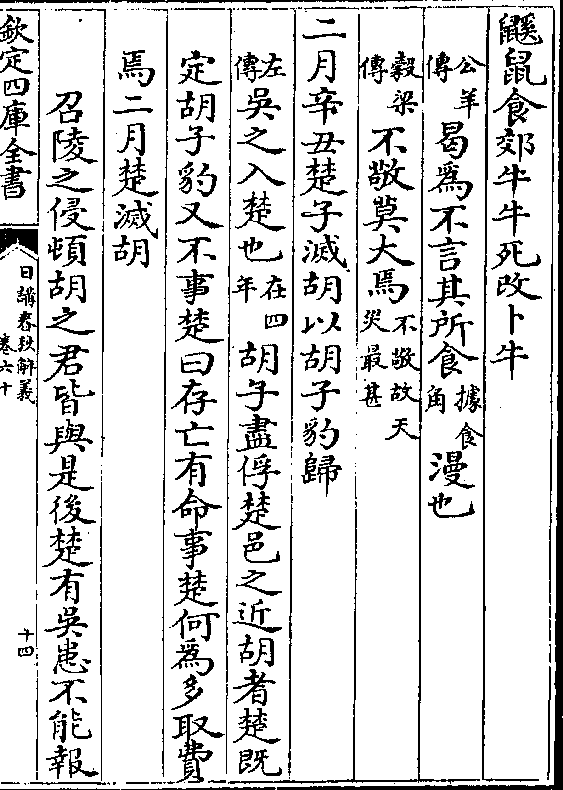 鼷鼠食郊牛牛死改卜牛
公羊傳曷爲不言其所食據食角漫也
糓梁傳不敬莫大焉不敬故天災最甚
二月辛丑楚子滅胡以胡子豹歸
左傳吳之入楚也在四年胡子盡俘楚邑之近胡者楚既
定胡子豹又不事楚曰存亡有命事楚何爲多取費
焉二月楚滅胡
召陵之侵頓胡之君皆與是後楚有吳患不能報
欽定四庫全書
日講春秋解義
卷六十
十四